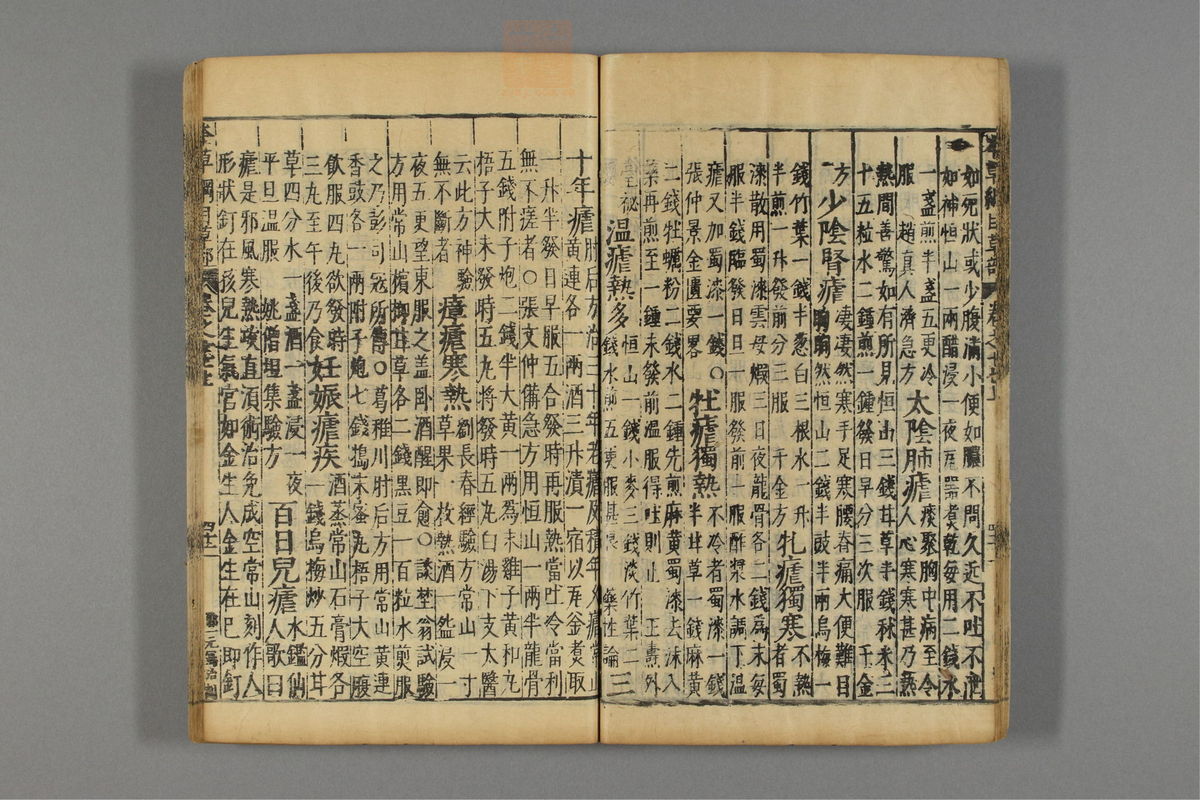 如死狀或少腹滿小便如膿不問久近不吐不泄
如神恒山一兩醋浸一夜瓦器煮乾每用二錢水
一盞煎半盞五更冷
服 趙真人濟急方 太陰肺瘧 痰聚胸中病至令人心寒寒甚乃熱
熱間善驚如有所見恒山三錢甘草半錢秫米三
十五粒水二鍾煎一鍾發日早分三次服 千金
方 少陰腎瘧 凄凄然寒手足寒腰脊痛大便難目眴眴然恒山二錢半豉半兩烏梅一
錢竹葉一錢半葱白三根水一升
半煎一升發前分三服 千金方 牝瘧獨寒 不熱者蜀
漆散用蜀漆雲母煅三日夜龍骨各二錢爲末每
服半錢臨發日旦一服發前一服酢漿水調下温
瘧又加蜀漆一錢〇 牡瘧獨熱 不冷者蜀漆一錢半甘草一錢麻黃
張仲景金匱要畧
二錢牡蠣粉二錢水二鍾先煎麻黃蜀漆去沫入
藥再煎至一鍾未發前温服得吐則止 王燾外
臺秘 温瘧熱多 恒山一錢小麥三錢淡竹葉二錢水煎五更服甚良 藥性論 三
十年瘧 肘后方治三十年老瘧及積年久瘧常山黃連各一兩酒三升漬一宿以瓦釜煮取
一升半發日早服五合發時再服熱當吐冷當利
無不瘥者〇張文仲備急方用恒山一兩半龍骨
五錢附子炮二錢半大黃一兩爲末雞子黃和丸
梧子大未發時五丸將發時五丸白湯下支太醫
云此方神驗
無不斷者 瘴瘧寒熱 劉長春經驗方常山一寸草果一枚熱酒一盌浸一
夜五更望東服之盖卧酒醒即愈〇談埜翁試驗
方用常山檳榔甘草各二錢黑豆一百粒水煎服
之乃彭司寇所傳〇葛稚川肘后方用常山黃連
香豉各一兩附子炮七錢搗末蜜丸梧子大空腹
飲服四丸欲發時
三丸至午後乃食 妊娠瘧疾 酒蒸常山石膏煅各一錢烏梅炒五分甘
草四分水一盞酒一盞浸一夜
平旦温服 姚僧坦集驗方 百日兒瘧 水鑑仙人歌曰
瘧是邪風寒熱攻直須術治免成空常山刻作人
形狀釘在孩兒生氣宫如金生人金生在巳即釘